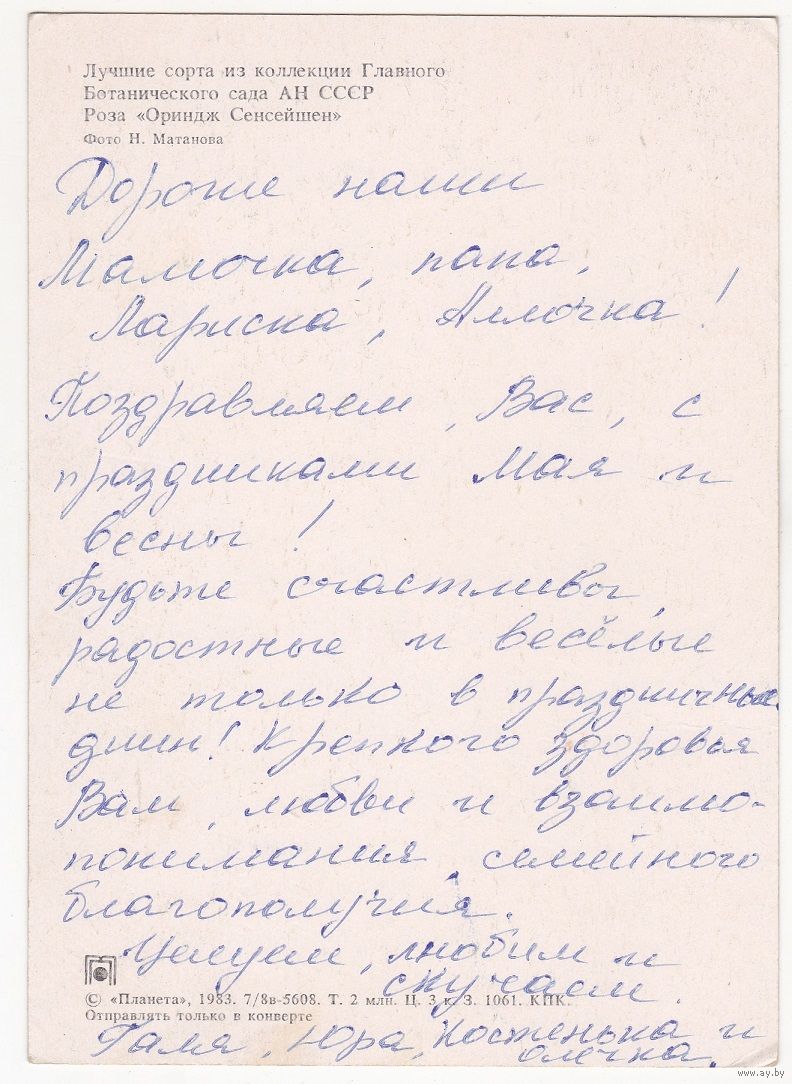 Лучшие сорта из коллекции Главного
Ботанического сада АН СССР
Роза «Ориндж Сенсейшен»
Фото Н. Матанова
Дорогие наши
Мамочка, папа,
Лариска, Аллочка!
Поздравляем, Вас, с
праздниками Мая и
весны!
Будьте счастливы,
радостные и весёлые
не только в праздничные
дни! Крепкого здоровья
Вам, любви и взаимо-
понимания, семейного
благополучия.
Целуем, любим и
скучаем.
© «Планета», 1983. 7/8в-5608. Т. 2 млн. Ц. 3 к. З. 1061. КПК.
Отправлять только в конверте
Галя, Юра, Костенька и
Олечка.
www.ay.by